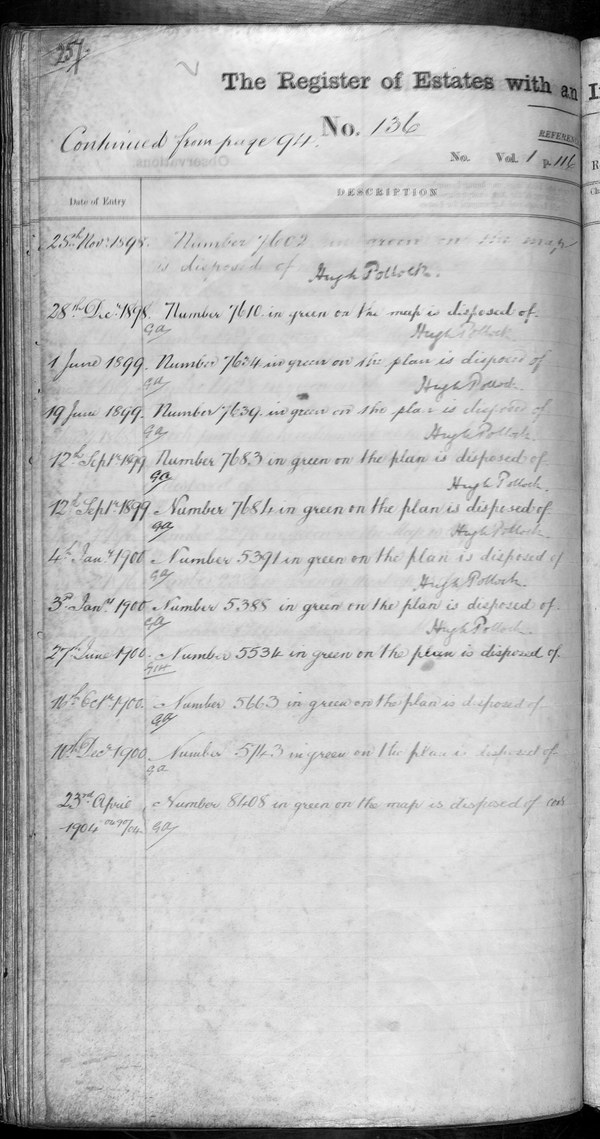 257.
The Register of Estates with an
Continued from page 94.
No. 136
REFEREN
No. Vol. 1 p. 116
Date of Entry
DESCRIPTION
25th Novr. 1898. Number 7602 in green on the map
is disposed of
Hugh Pollock.
28th Decr. 1898. Number 7610 in green on the map is disposed of.
GA
Hugh Pollock
1 June 1899. Number 7634 in green on the plan is disposed of
GA
Hugh Pollock
19 June 1899. Number 7639. in green on the plan is disposed of
GA
Hugh Pollock.
12th Septr. 1899 Number 7683 in green on the plan is disposed of
GA
Hugh Pollock.
12th Septr. 1899 Number 7684 in green on the plan is disposed of
GA
Hugh Pollock.
4th Jany. 1900 Number 5391 in green on the plan is disposed of
GA
Hugh Pollock
3d Jany. 1900 Number 5388 in green on the plan is disposed of.
GA
Hugh Pollock.
27th June 1900. Number 5534 in green on the plan is disposed of
16th Octr. 1900. Number 5663 in green on the plan is disposed of
GA
Decr. 1900. Number 5743 in green on the plan is disposed of
GA
23rd April Number 8408 in green on the map is disposed of
1904 GA